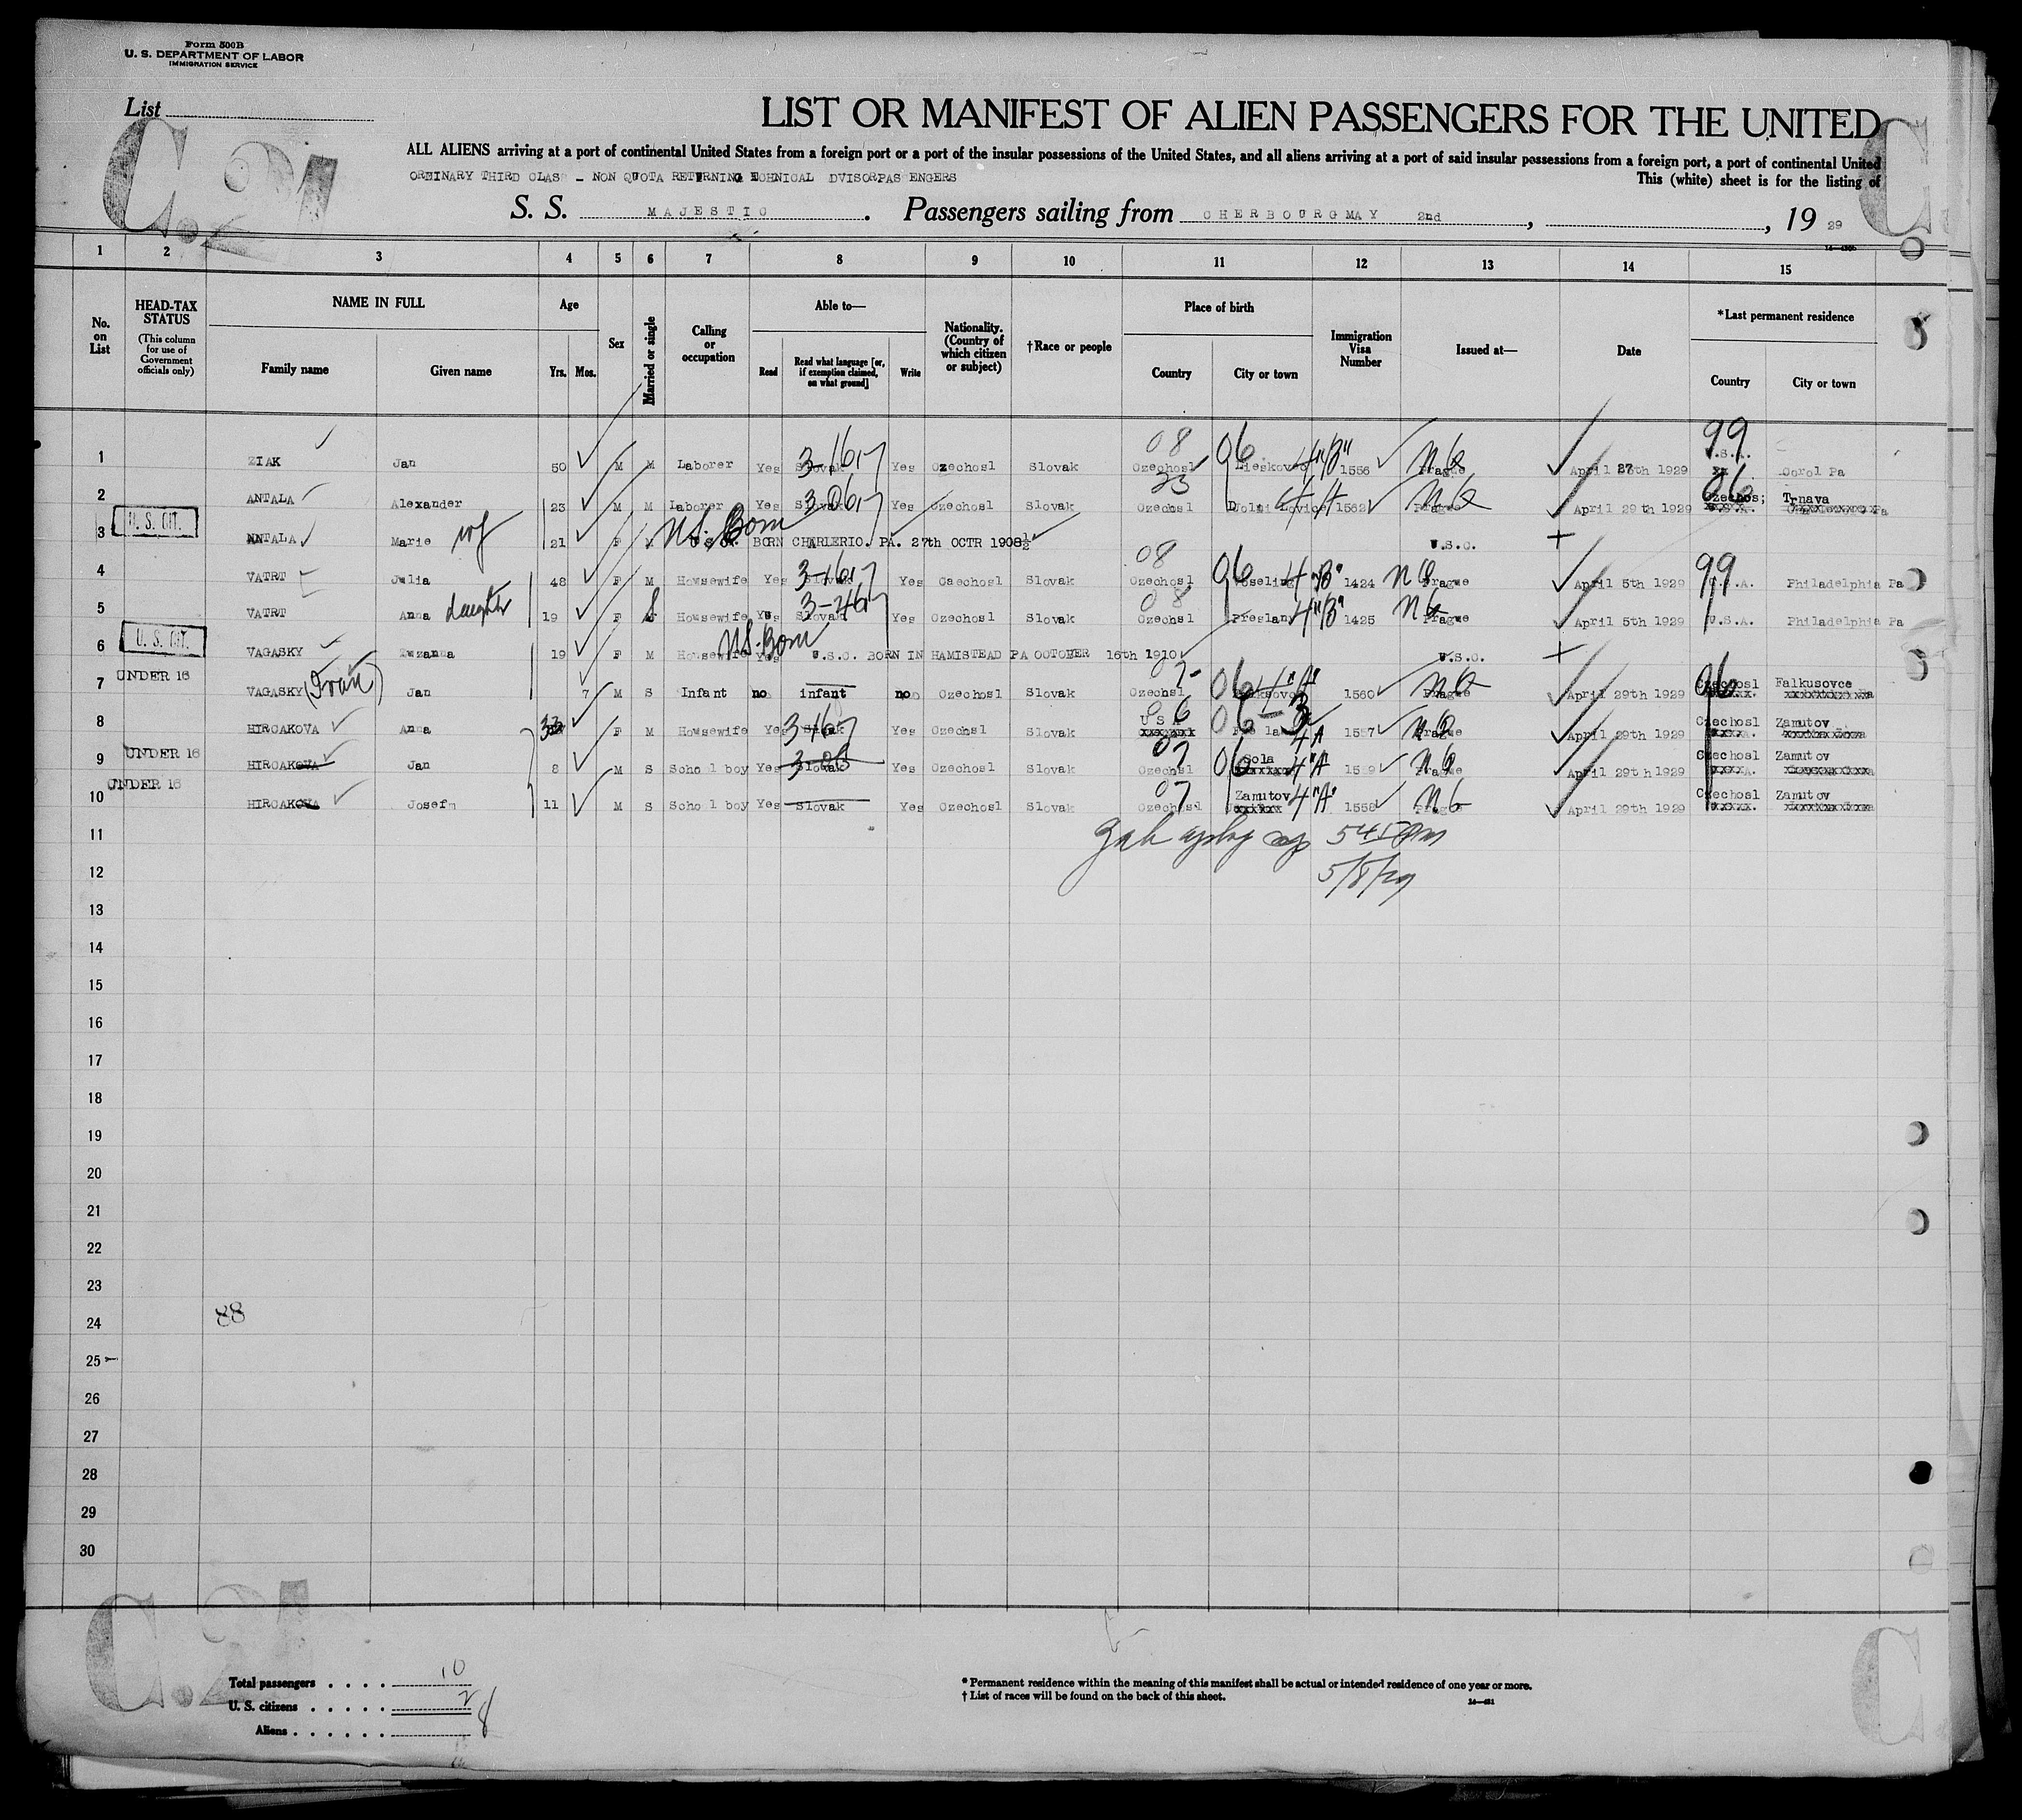 Form 500B
U. S. DEPARTMENT OF LABOR
IMMIGRATION SERVICE
List
LIST OR MANIFEST OF ALIEN PASSENGERS FOR THE UNITED
ALL ALIENS arriving at a port of continental United States from a foreign port or a port of the insular possessions of the United States, and all aliens arriving at a port of said insular possessions from a foreign port, a port of continental United
ORDINARY THIRD CLASS - NON QUOTA RETURNING
This (white) sheet is for the listing of
C.21 C
S. S. MAJESTIC. Passengers sailing from CHERBOURG MAY 2nd, , 19 29
1 2 3 4 5 6 7 8 9 10 11 12 13 14 15
No. on List
HEAD-TAX STATUS
(This column for use of Government officials only)
NAME IN FULL
Family name Given name
Age
Yrs. Mos.
Sex
Married or single
Calling or occupation
Able to—
Read
Read what language [or, if exemption claimed, on what ground]
Write
Nationality. (Country of which citizen or subject)
†Race or people
Place of birth
Country City or town
Immigration Visa Number
Issued at—
Date
*Last permanent residence
Country City or town
1 ZIAK Jan 50 M M Laborer Yes Slovak 3-161 Yes Czechosl Slovak 08 Czechosl 06 4"B" 1556 Prague April 27th 1929 99 U.S.A. Pa
2 ANTALA Alexander 23 M M Laborer Yes Slovak 3-061 Yes Czechosl Slovak 23 Czechosl 44 1562 Prague April 29th 1929 06 Czechos; Trnava
3 U. S. CIT. ANTALA Marie wf 21 F M U.S. Born BORN CHARLERIO. PA. 27th OCTR 1908½ U.S.C.
4 VATRT Julia 48 F M Housewife Yes Slovak 3-161 Yes Czechosl Slovak 08 Czechosl 06 4"B" 1424 Prague April 5th 1929 99 U.S.A. Philadelphia Pa
5 VATRT Anna daughter 19 F S Housewife Yes Slovak 3-261 Yes Czechosl Slovak 08 Czechosl 4"B" 1425 Prague April 5th 1929 U.S.A. Philadelphia Pa
6 U. S. CIT. VAGASKY Zuzanna 19 F M Housewife Yes U.S. Born U.S.C. BORN IN HAMISTEAD PA OCTOBER 16th 1910 U.S.C.
7 UNDER 16 VAGASKY Jan 7 M S Infant no infant no Czechosl Slovak Czechosl 06 4"A" 1560 Prague April 29th 1929 06 Czechosl Falkusovce
8 HIRCAKOVA Anna 33 F M Housewife Yes Slovak 3-161 Yes Czechsl Slovak 06 USA 06-3 4A 1557 Prague April 29th 1929 Czechosl Zamutov
9 UNDER 16 HIRCAKOVA Jan 8 M S School boy Yes Slovak Yes Czechosl Slovak 07 Czechosl 06 Sola 4"A" 1559 Prague April 29th 1929 Czechosl Zamutov
10 UNDER 16 HIRCAKOVA Josef 11 M S School boy Yes Slovak Yes Czechosl Slovak 07 Czechosl Zamutov 4"A" 1558 Prague April 29th 1929 Czechosl Zamutov
11
5/8/29
12
13
14
15
16
17
18
19
20
21
22
23
88
24
25
26
27
28
29
30
C.21 C
Total passengers . . . . 10
U. S. citizens . . . . . 2
Aliens . . . . . . 8
* Permanent residence within the meaning of this manifest shall be actual or intended residence of one year or more.
† List of races will be found on the back of this sheet.